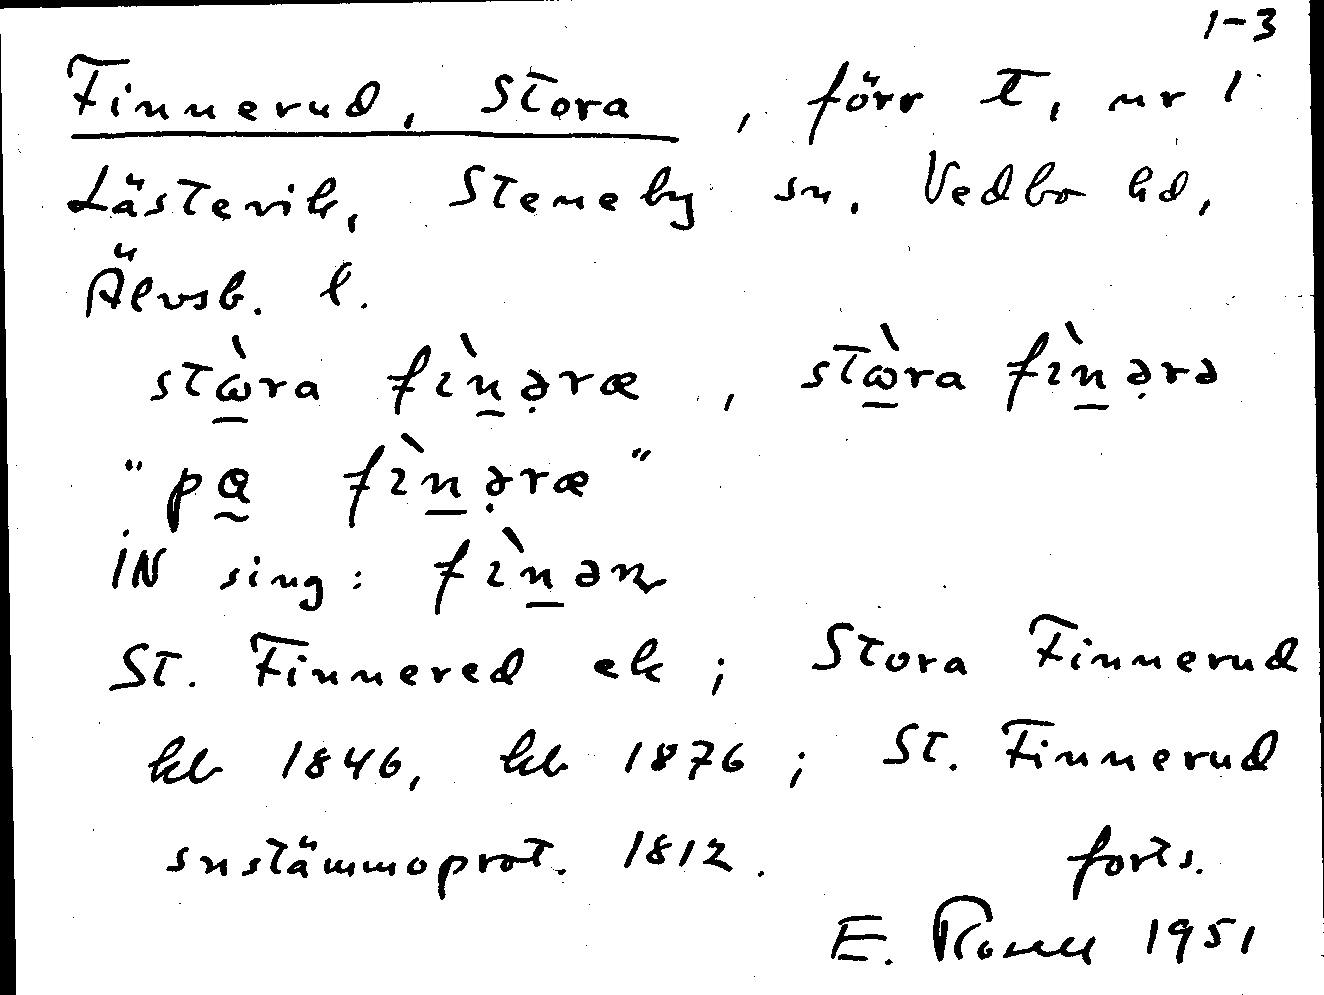 1-3
Finnerud, Stora, förr t, nr 1
Lästevik, Steneby sn. Vedbo hd,
Älvsb. l.
stὼra fìn̠ə̣ræ, stὼra fìn̠ə̣rə
"pɑ fìn̠ə̣ræ"
IN sing: fìn̠ən
St. Finnered ek; Stora Finnerud
kb 1846, kb 1876; St. Finnerud
snstämmoprot. 1812. forts.
E. 1951